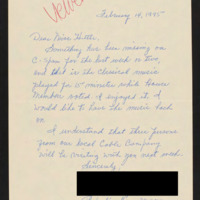 February 14, 1995
Dear Miss
Something has been missing on
C-Span for the last week or two,
and that is the Classical music
played for 15 minutes while House
Members voted. I enjoyed it & I
would like to have the music back
on.
I understand that
from our local Cable Company
will be meeting with you next week.
Sincerely,